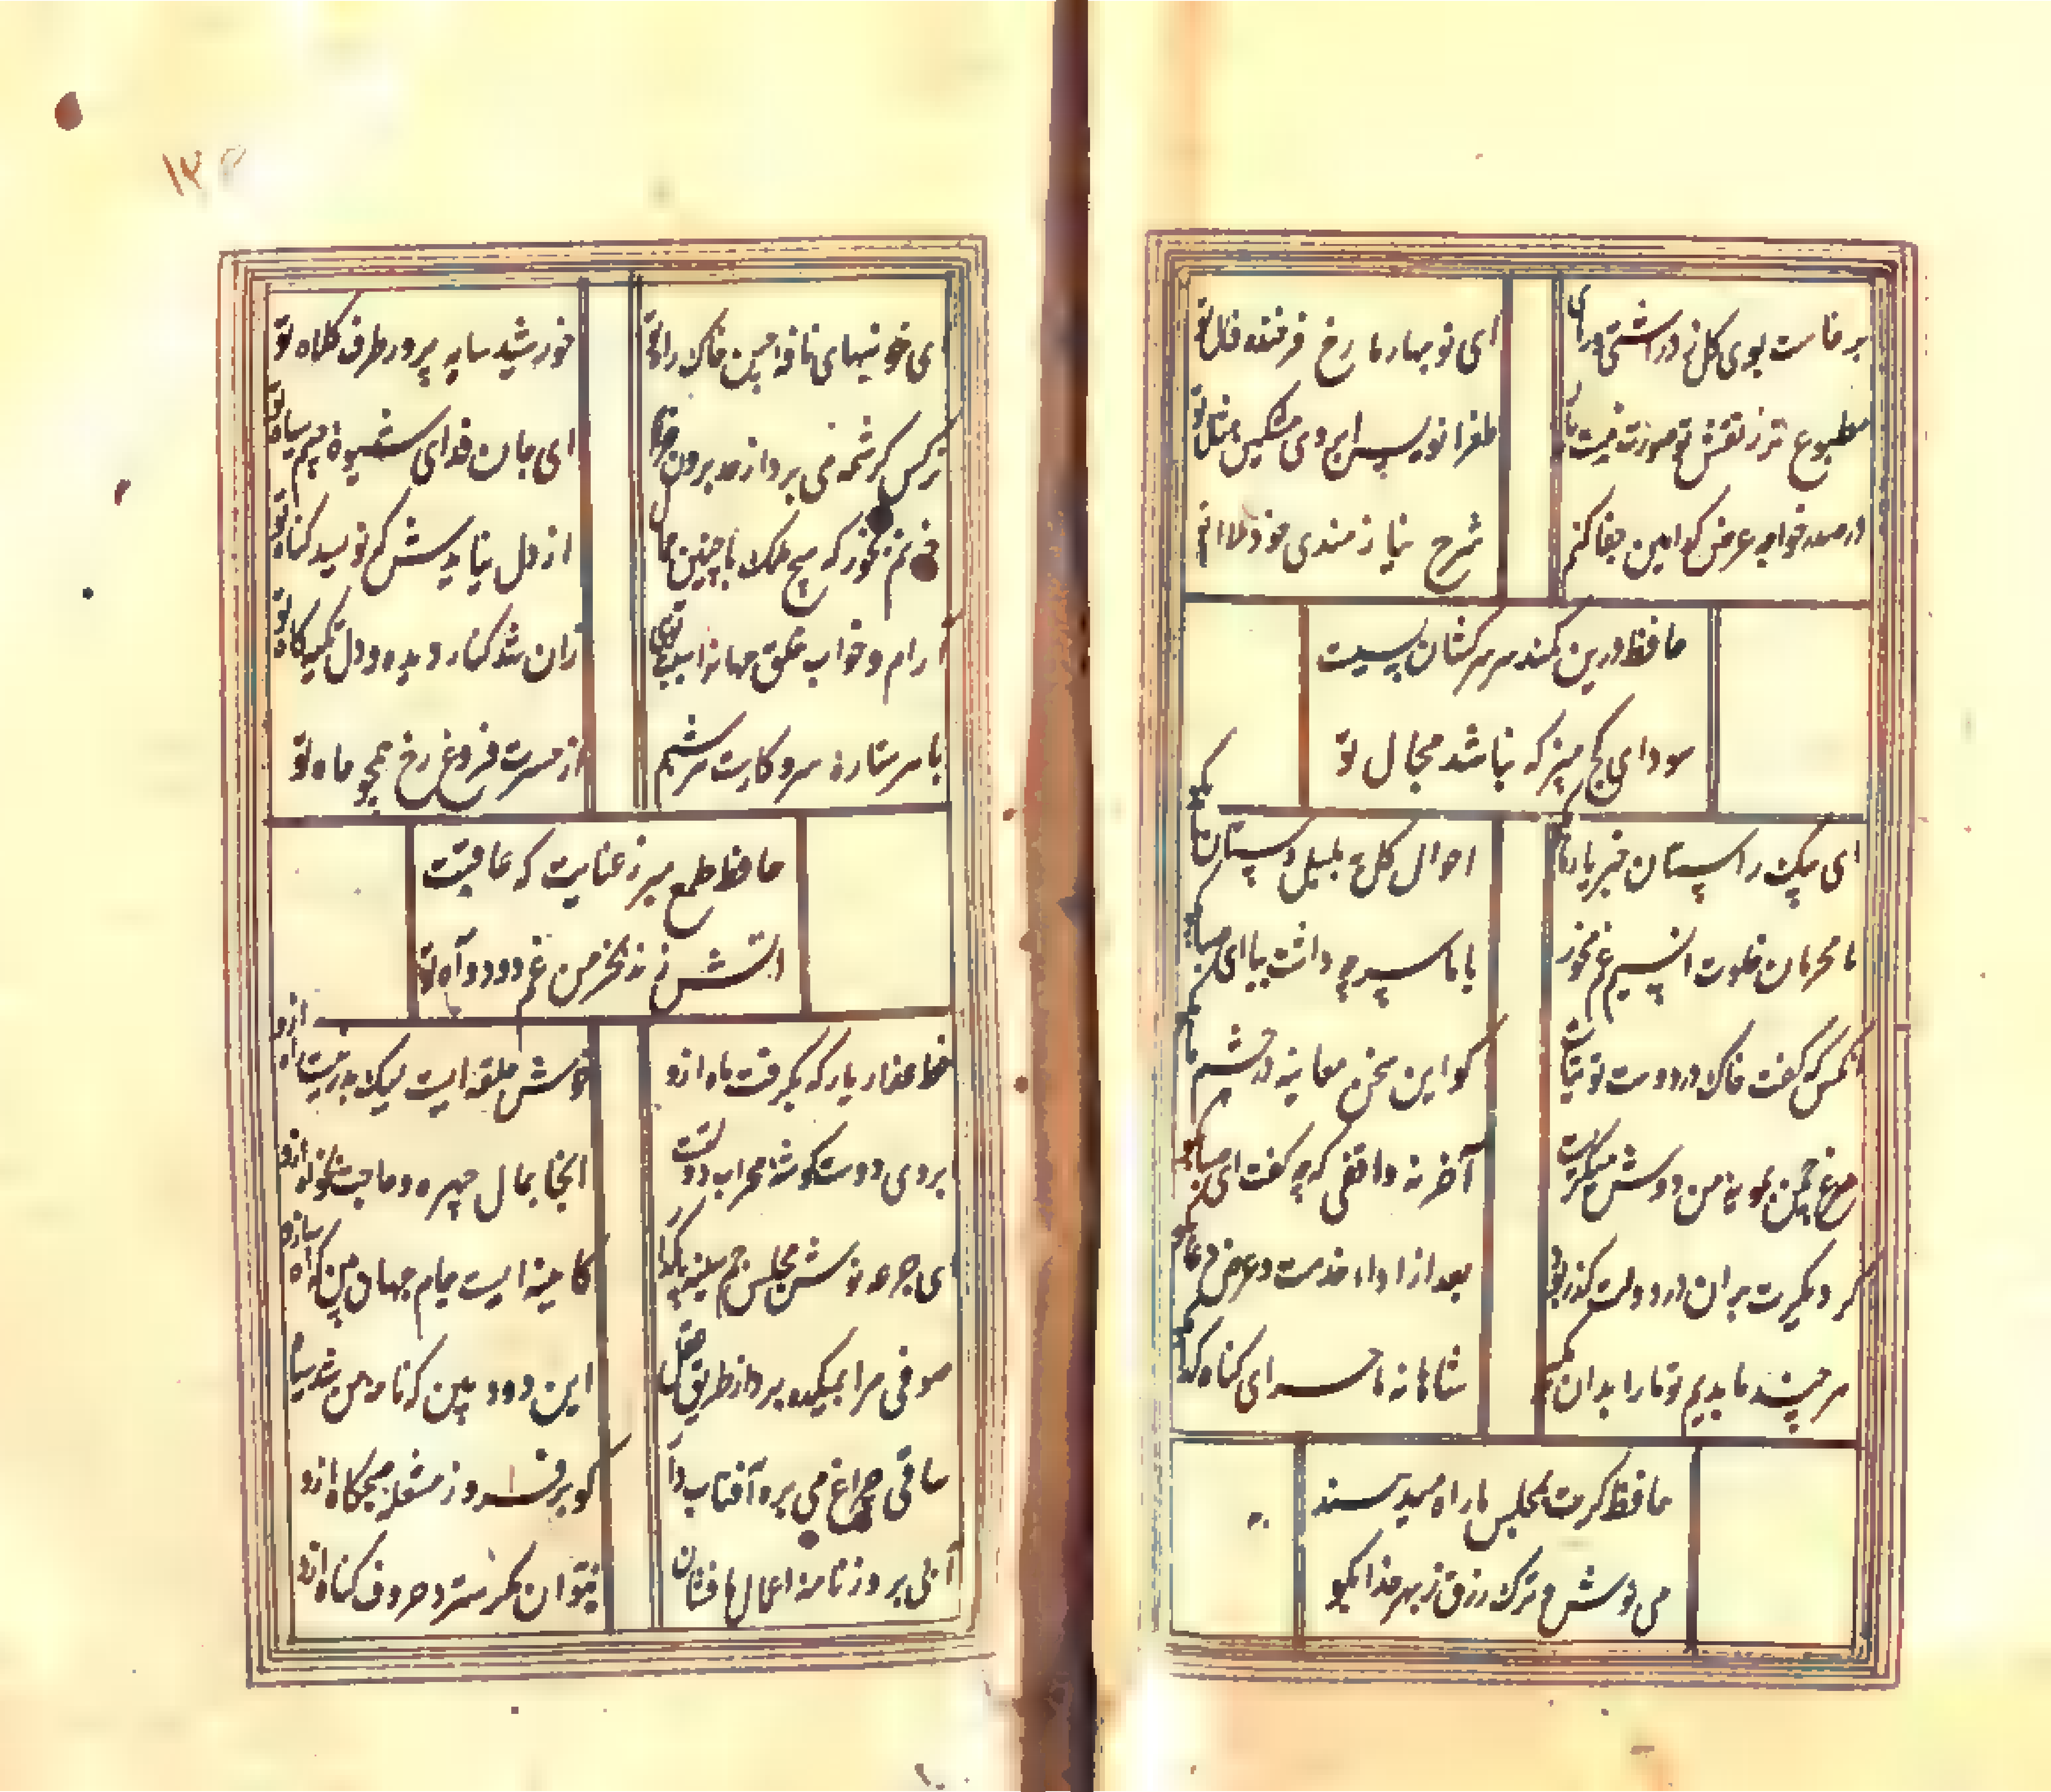 برخاست بوی گل ز در آشتی درای
ای نوبهار ما رخ فرخنده فال تو
مطبوع تر ز نقش تو صورت نبست باز
طغرا نویس ابروی مشکین مثال تو
در صدر خواجه عرض کدامین جفا کنم
شرح نیازمندی خود یا ملال تو
حافظ درین کمند سر سرکشان بسیست
سودای کج مپز که نباشد مجال تو
ای پیک راستان خبر یار ما بگو
احوال گل به بلبل دستان سرا بگو
ما محرمان خلوت انسیم غم مخور
با یار آشنا سخن آشنا بگو
آنکس که گفت خاک در دوست توتیاست
گو این سخن معاینه در چشم ما بگو
مرغ چمن به مویه من دوش میگریست
آخر نه واقفی که چه گفت ای صبا بگو
گر دیگرت بران در دولت گذر بود
بعد از اداء خدمت و عرض دعا بگو
هر چند ما بدیم تو ما را بدان مگیر
شاهانه ماجرای گناه گدا بگو
حافظ گرت بمجلس ما راه میدهند
می نوش و ترک رزق ز بهر خدا بگو
ای خونبهای نافه چین خاک راه تو
خورشید سایه پرور طرف کلاه تو
نرگس کرشمه می برد از حد برون خرام
ای جان فدای شیوه چشم سیاه تو
خونم بخور که هیچ ملک با چنین جمال
از دل نیایدش که نویسد گناه تو
آرام و خواب خلق جهانرا سبب توئی
زان شد کنار دیده و دل تکیه گاه تو
با هر ستاره سر و کارست هر شبم
از حسرت فروغ رخ همچو ماه تو
حافظ طمع مبر ز عنایت که عاقبت
آتش زند بخرمن غم دود آه تو
خط عذار یار که بگرفت ماه ازو
خوش حلقه ایست لیک بدر نیست راه ازو
ابروی دوست گوشه محراب دولتست
آنجا بمال چهره و حاجت بخواه ازو
ای جرعه نوش مجلس جم سینه پاک دار
کآیینه ایست جام جهان بین که آه ازو
صوفی مرا بمیکده برد از طریق عقل
این دود بین که نامه من شد سیاه ازو
ساقی چراغ می بره آفتاب دار
گو برفروز مشعله صبحگاه ازو
آبی بروزنامه اعمال ما فشان
بتوان مگر سترد حروف گناه ازو